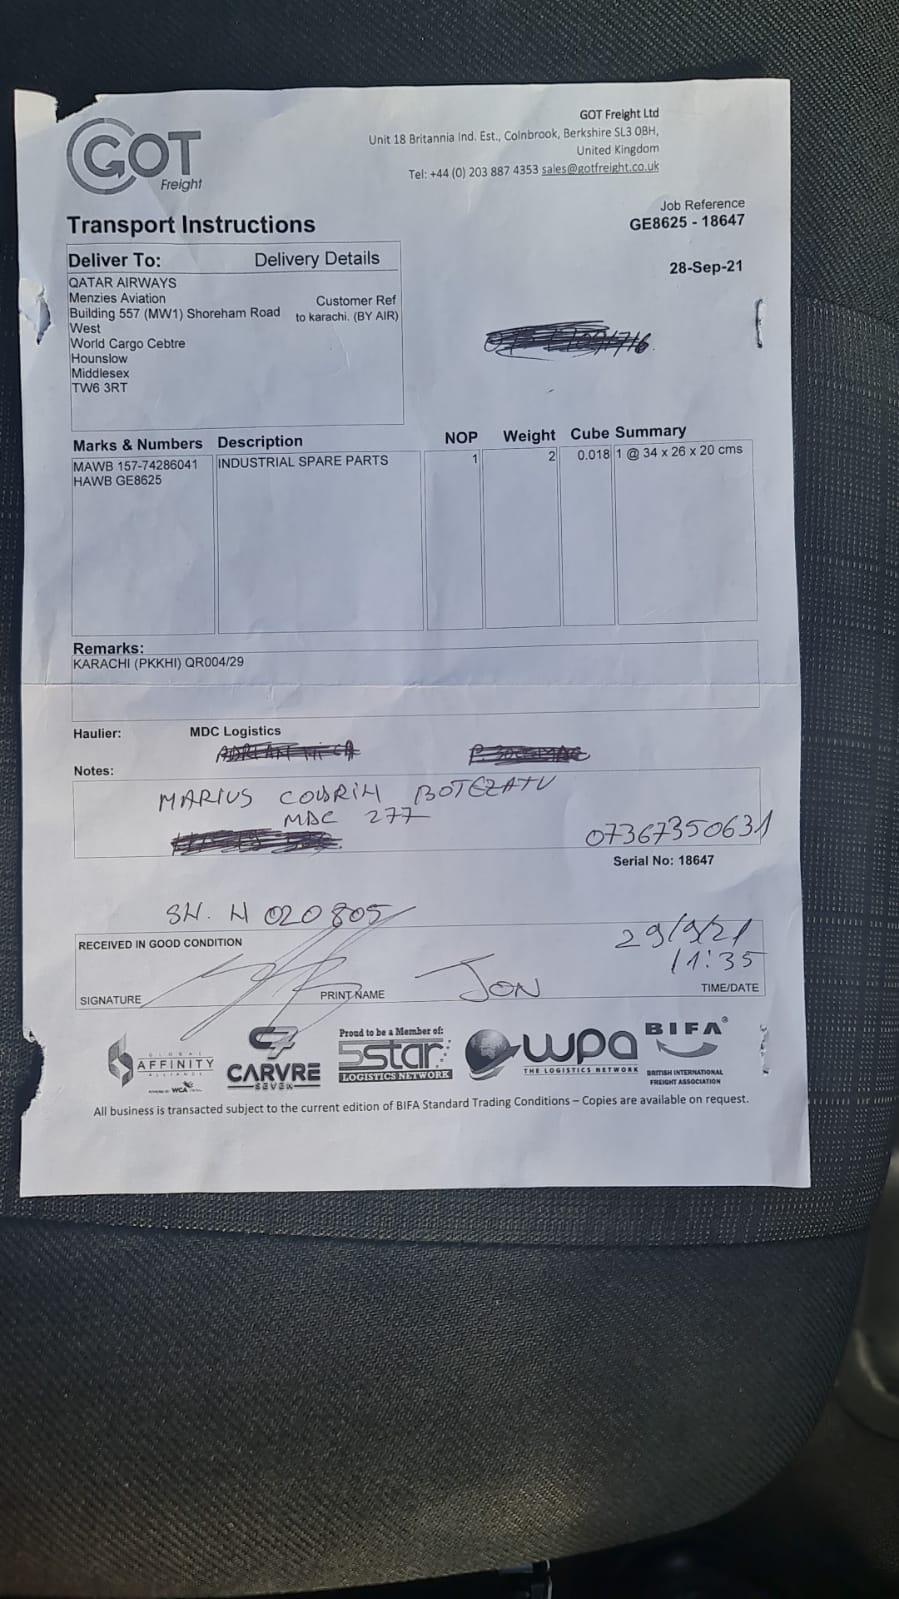 GOT
Freight
GOT Freight Ltd
Unit 18 Britannia Ind. Est., Colnbrook, Berkshire SL3 0BH,
United Kingdom
Tel: +44 (0) 203 887 4353 sales@gotfreight.co.uk
Job Reference
GE8625 - 18647
28-Sep-21
Transport Instructions
Deliver To: Delivery Details
QATAR AIRWAYS
Menzies Aviation
Building 557 (MW1) Shoreham Road
West
World Cargo Cebtre
Hounslow
Middlesex
TW6 3RT
Customer Ref
to karachi. (BY AIR)
Marks & Numbers Description NOP Weight Cube Summary
MAWB 157-74286041 INDUSTRIAL SPARE PARTS 1 2 0.018 1 @ 34 x 26 x 20 cms
HAWB GE8625
Remarks:
KARACHI (PKKHI) QR004/29
Haulier: MDC Logistics
Notes:
MARIUS BOTEZATU
MDC 277
07367350631
Serial No: 18647
SH. H 020805
RECEIVED IN GOOD CONDITION
29/9/21
11:35
SIGNATURE PRINT NAME JON TIME/DATE
GLOBAL
AFFINITY
ALLIANCE
WCA
CARVRE
SEVEN
Proud to be a Member of:
5star
LOGISTICS NETWORK
wpa
THE LOGISTICS NETWORK
BIFA®
BRITISH INTERNATIONAL
FREIGHT ASSOCIATION
All business is transacted subject to the current edition of BIFA Standard Trading Conditions – Copies are available on request.